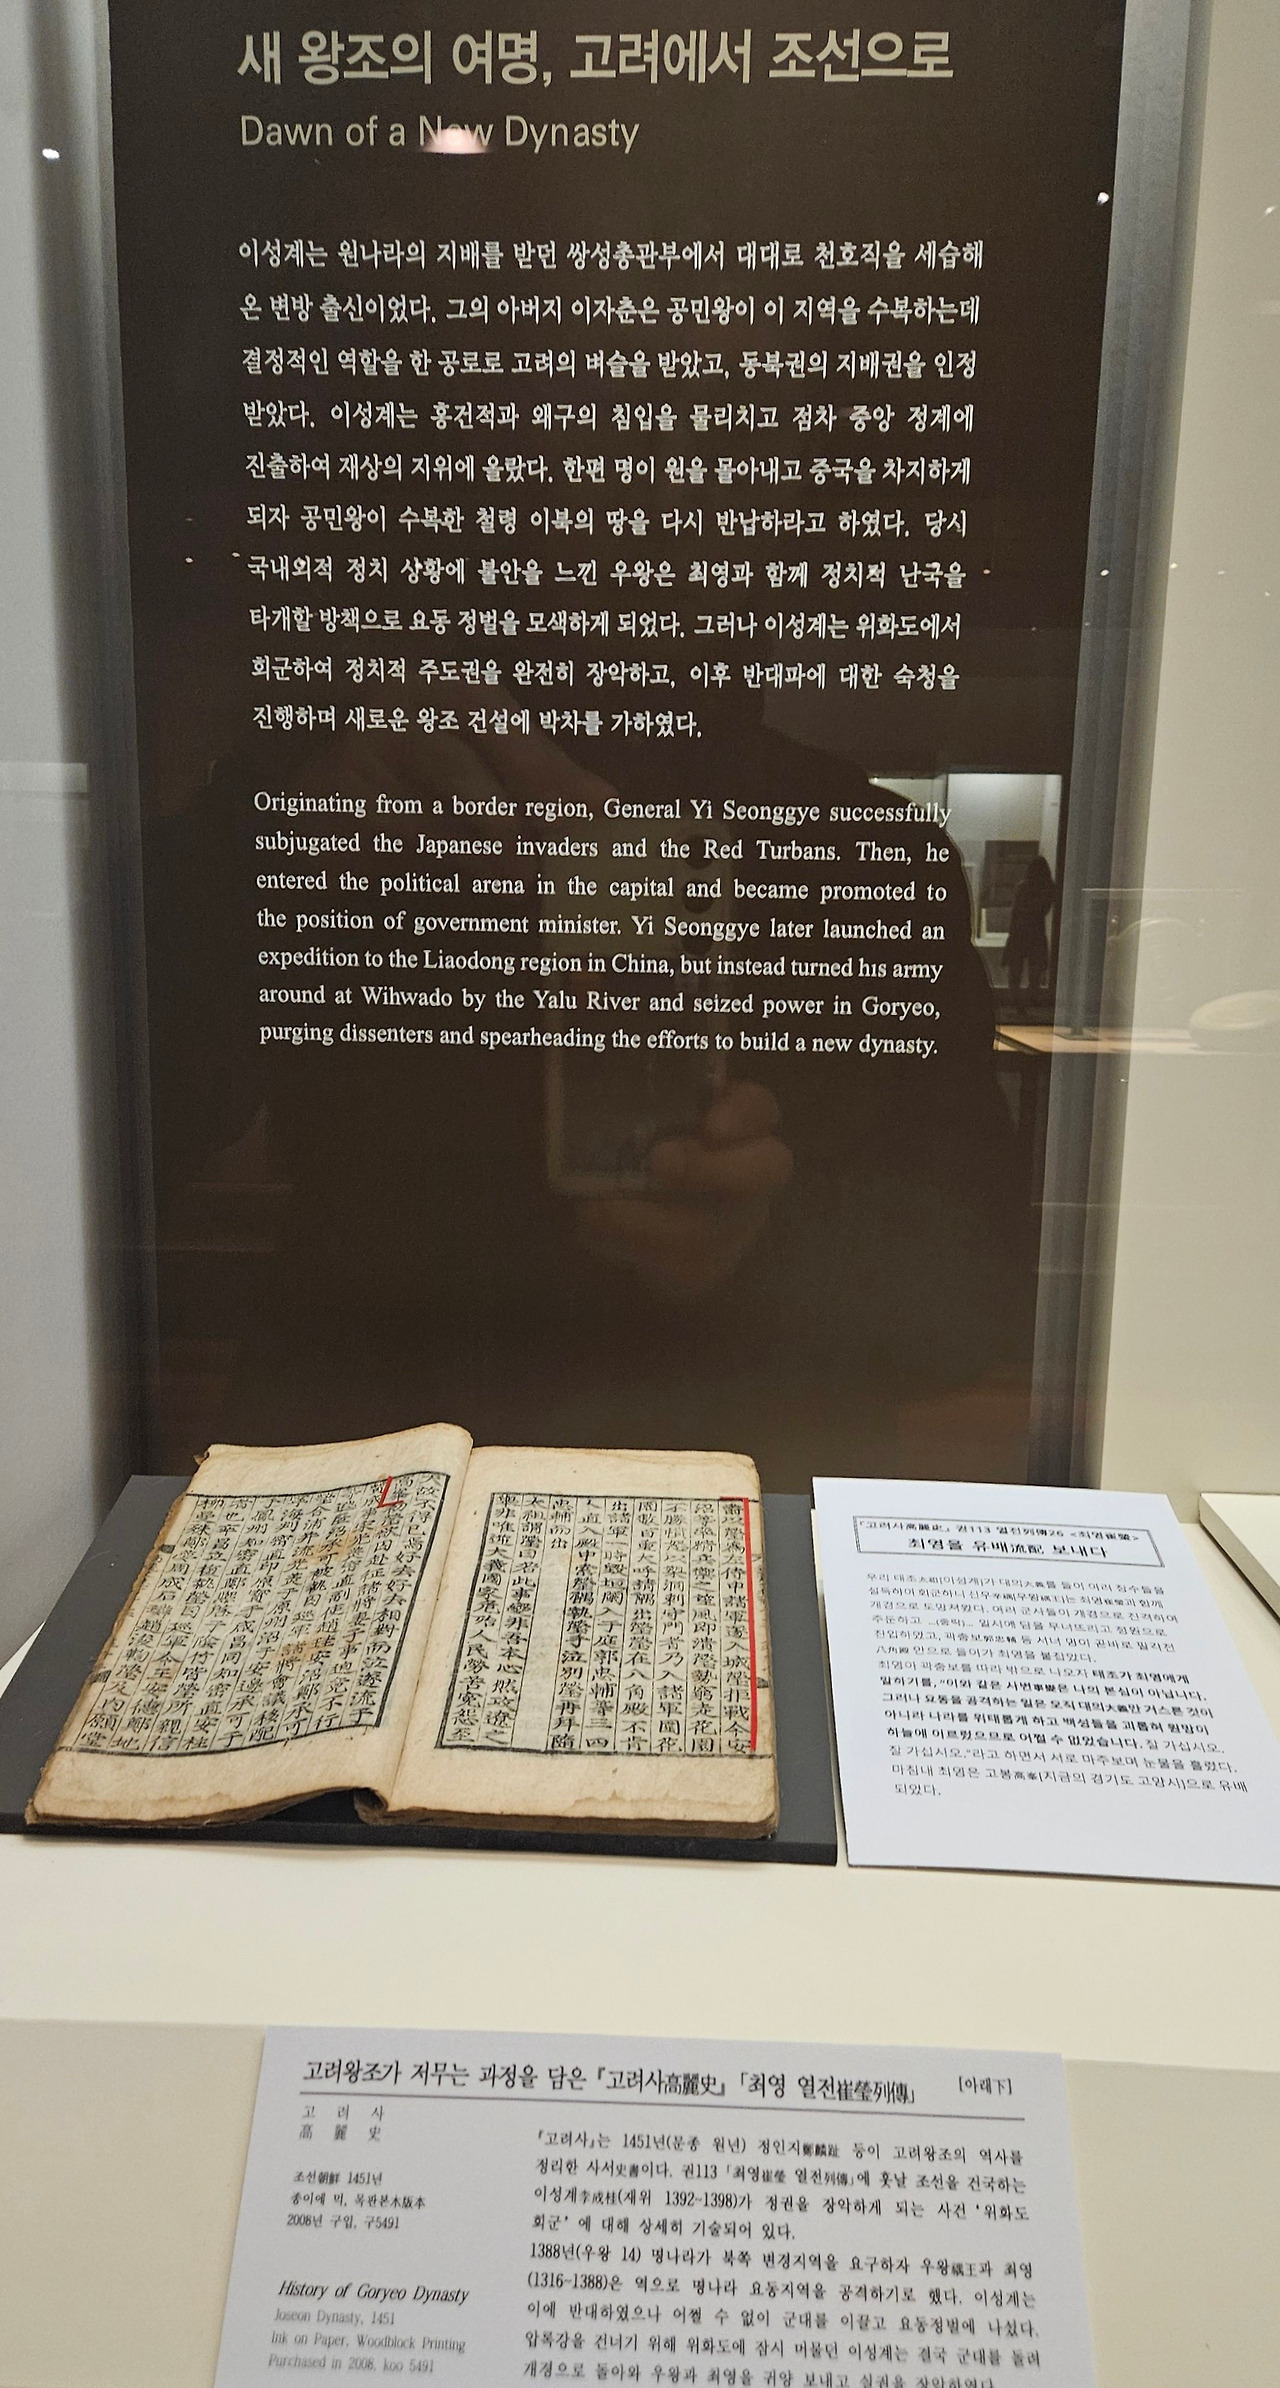 새 왕조의 여명, 고려에서 조선으로
Dawn of a New Dynasty
이성계는 원나라의 지배를 받던 쌍성총관부에서 대대로 천호직을 세습해
온 변방 출신이었다. 그의 아버지 이자춘은 공민왕이 이 지역을 수복하는데
결정적인 역할을 한 공로로 고려의 벼슬을 받았고, 동북권의 지배권을 인정
받았다. 이성계는 홍건적과 왜구의 침입을 물리치고 점차 중앙 정계에
진출하여 재상의 지위에 올랐다. 한편 명이 원을 몰아내고 중국을 차지하게
되자 공민왕이 수복한 철령 이북의 땅을 다시 반납하라고 하였다. 당시
국내외적 정치 상황에 불안을 느낀 우왕은 최영과 함께 정치적 난국을
타개할 방책으로 요동 정벌을 모색하게 되었다. 그러나 이성계는 위화도에서
회군하여 정치적 주도권을 완전히 장악하고, 이후 반대파에 대한 숙청을
진행하며 새로운 왕조 건설에 박차를 가하였다.
Originating from a border region, General Yi Seonggye successfully
subjugated the Japanese invaders and the Red Turbans. Then, he
entered the political arena in the capital and became promoted to
the position of government minister. Yi Seonggye later launched an
expedition to the Liaodong region in China, but instead turned his army
around at Wihwado by the Yalu River and seized power in Goryeo,
purging dissenters and spearheading the efforts to build a new dynasty.
不勝憤怒以槊洞刺守門者乃入諸軍圍花
園數百重大呼請隅出瑩瑩在八角殿不肯
出諸軍一時毁垣闌入于庭郭忠輔等三四
人直入殿中索瑩隅執瑩手泣別瑩再拜隨
忠輔而出
太祖謂瑩曰若此事變非吾本心然攻遼之
擧非唯逆大義國家危殆人民勞苦寃怨至
天故不得已焉好去好去相對而泣遂流于
『고려사高麗史』 권113 열전列傳26 <최영崔瑩>
최영을 유배流配 보내다
우리 태조太祖[이성계]가 대의大義를 들어 여러 장수들을
설득하여 회군하니 신우辛禑[우왕禑王]는 최영崔瑩과 함께
개경으로 도망쳐왔다. 여러 군사들이 개경으로 진격하여
주둔하고 …(중략)… 일시에 담을 무너뜨리고 정원으로
진입하였고, 곽충보郭忠輔 등 서너 명이 곧바로 팔각전
八角殿 안으로 들어가 최영을 붙잡았다.
최영이 곽충보를 따라 밖으로 나오자 태조가 최영에게
말하기를, "이와 같은 사변事變은 나의 본심이 아닙니다.
그러나 요동을 공격하는 일은 오직 대의大義만 거스른 것이
아니라 나라를 위태롭게 하고 백성들을 괴롭혀 원망이
하늘에 이르렀으므로 어쩔 수 없었습니다. 잘 가십시오.
잘 가십시오."라고 하면서 서로 마주보며 눈물을 흘렸다.
마침내 최영은 고봉高峯[지금의 경기도 고양시]으로 유배
되었다.
고려왕조가 저무는 과정을 담은 『고려사高麗史』 「최영 열전崔瑩列傳」 [아래下]
고 려 사
高 麗 史
조선朝鮮 1451년
종이에 먹, 목판본木版本
2008년 구입, 구5491
History of Goryeo Dynasty
Joseon Dynasty, 1451
Ink on Paper, Woodblock Printing
Purchased in 2008, koo 5491
『고려사』는 1451년(문종 원년) 정인지鄭麟趾 등이 고려왕조의 역사를
정리한 사서史書이다. 권113 「최영崔瑩 열전列傳」에 훗날 조선을 건국하는
이성계李成桂(재위 1392~1398)가 정권을 장악하게 되는 사건 '위화도
회군' 에 대해 상세히 기술되어 있다.
1388년(우왕 14) 명나라가 북쪽 변경지역을 요구하자 우왕禑王과 최영
(1316~1388)은 역으로 명나라 요동지역을 공격하기로 했다. 이성계는
이에 반대하였으나 어쩔 수 없이 군대를 이끌고 요동정벌에 나섰다.
압록강을 건너기 위해 위화도에 잠시 머물던 이성계는 결국 군대를 돌려
개경으로 돌아와 우왕과 최영을 귀양 보내고 실권을 장악하였다.